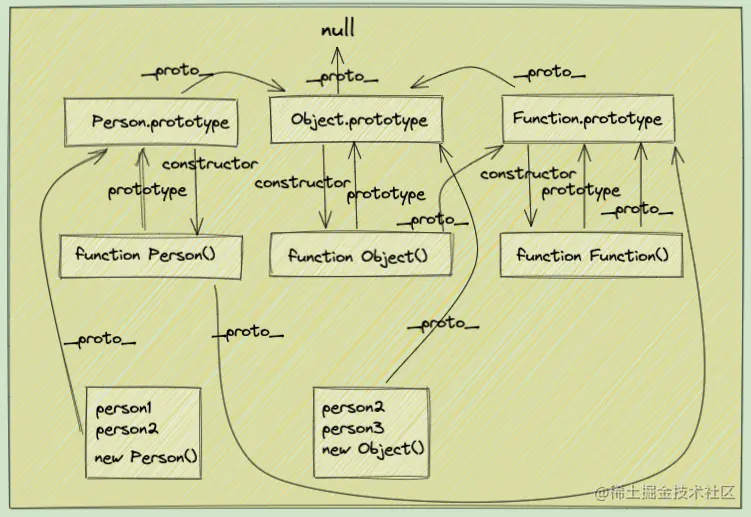 null
_proto_
_proto_
_proto_
Person.prototype
Object.prototype
Function.prototype
constructor
prototype
constructor
prototype
_proto_
constructor
prototype
_proto_
function Person()
function Object()
function Function()
_proto_
_proto_
_proto_
person1
person2
new Person()
person2
person3
new Object()
@稀土掘金技术社区